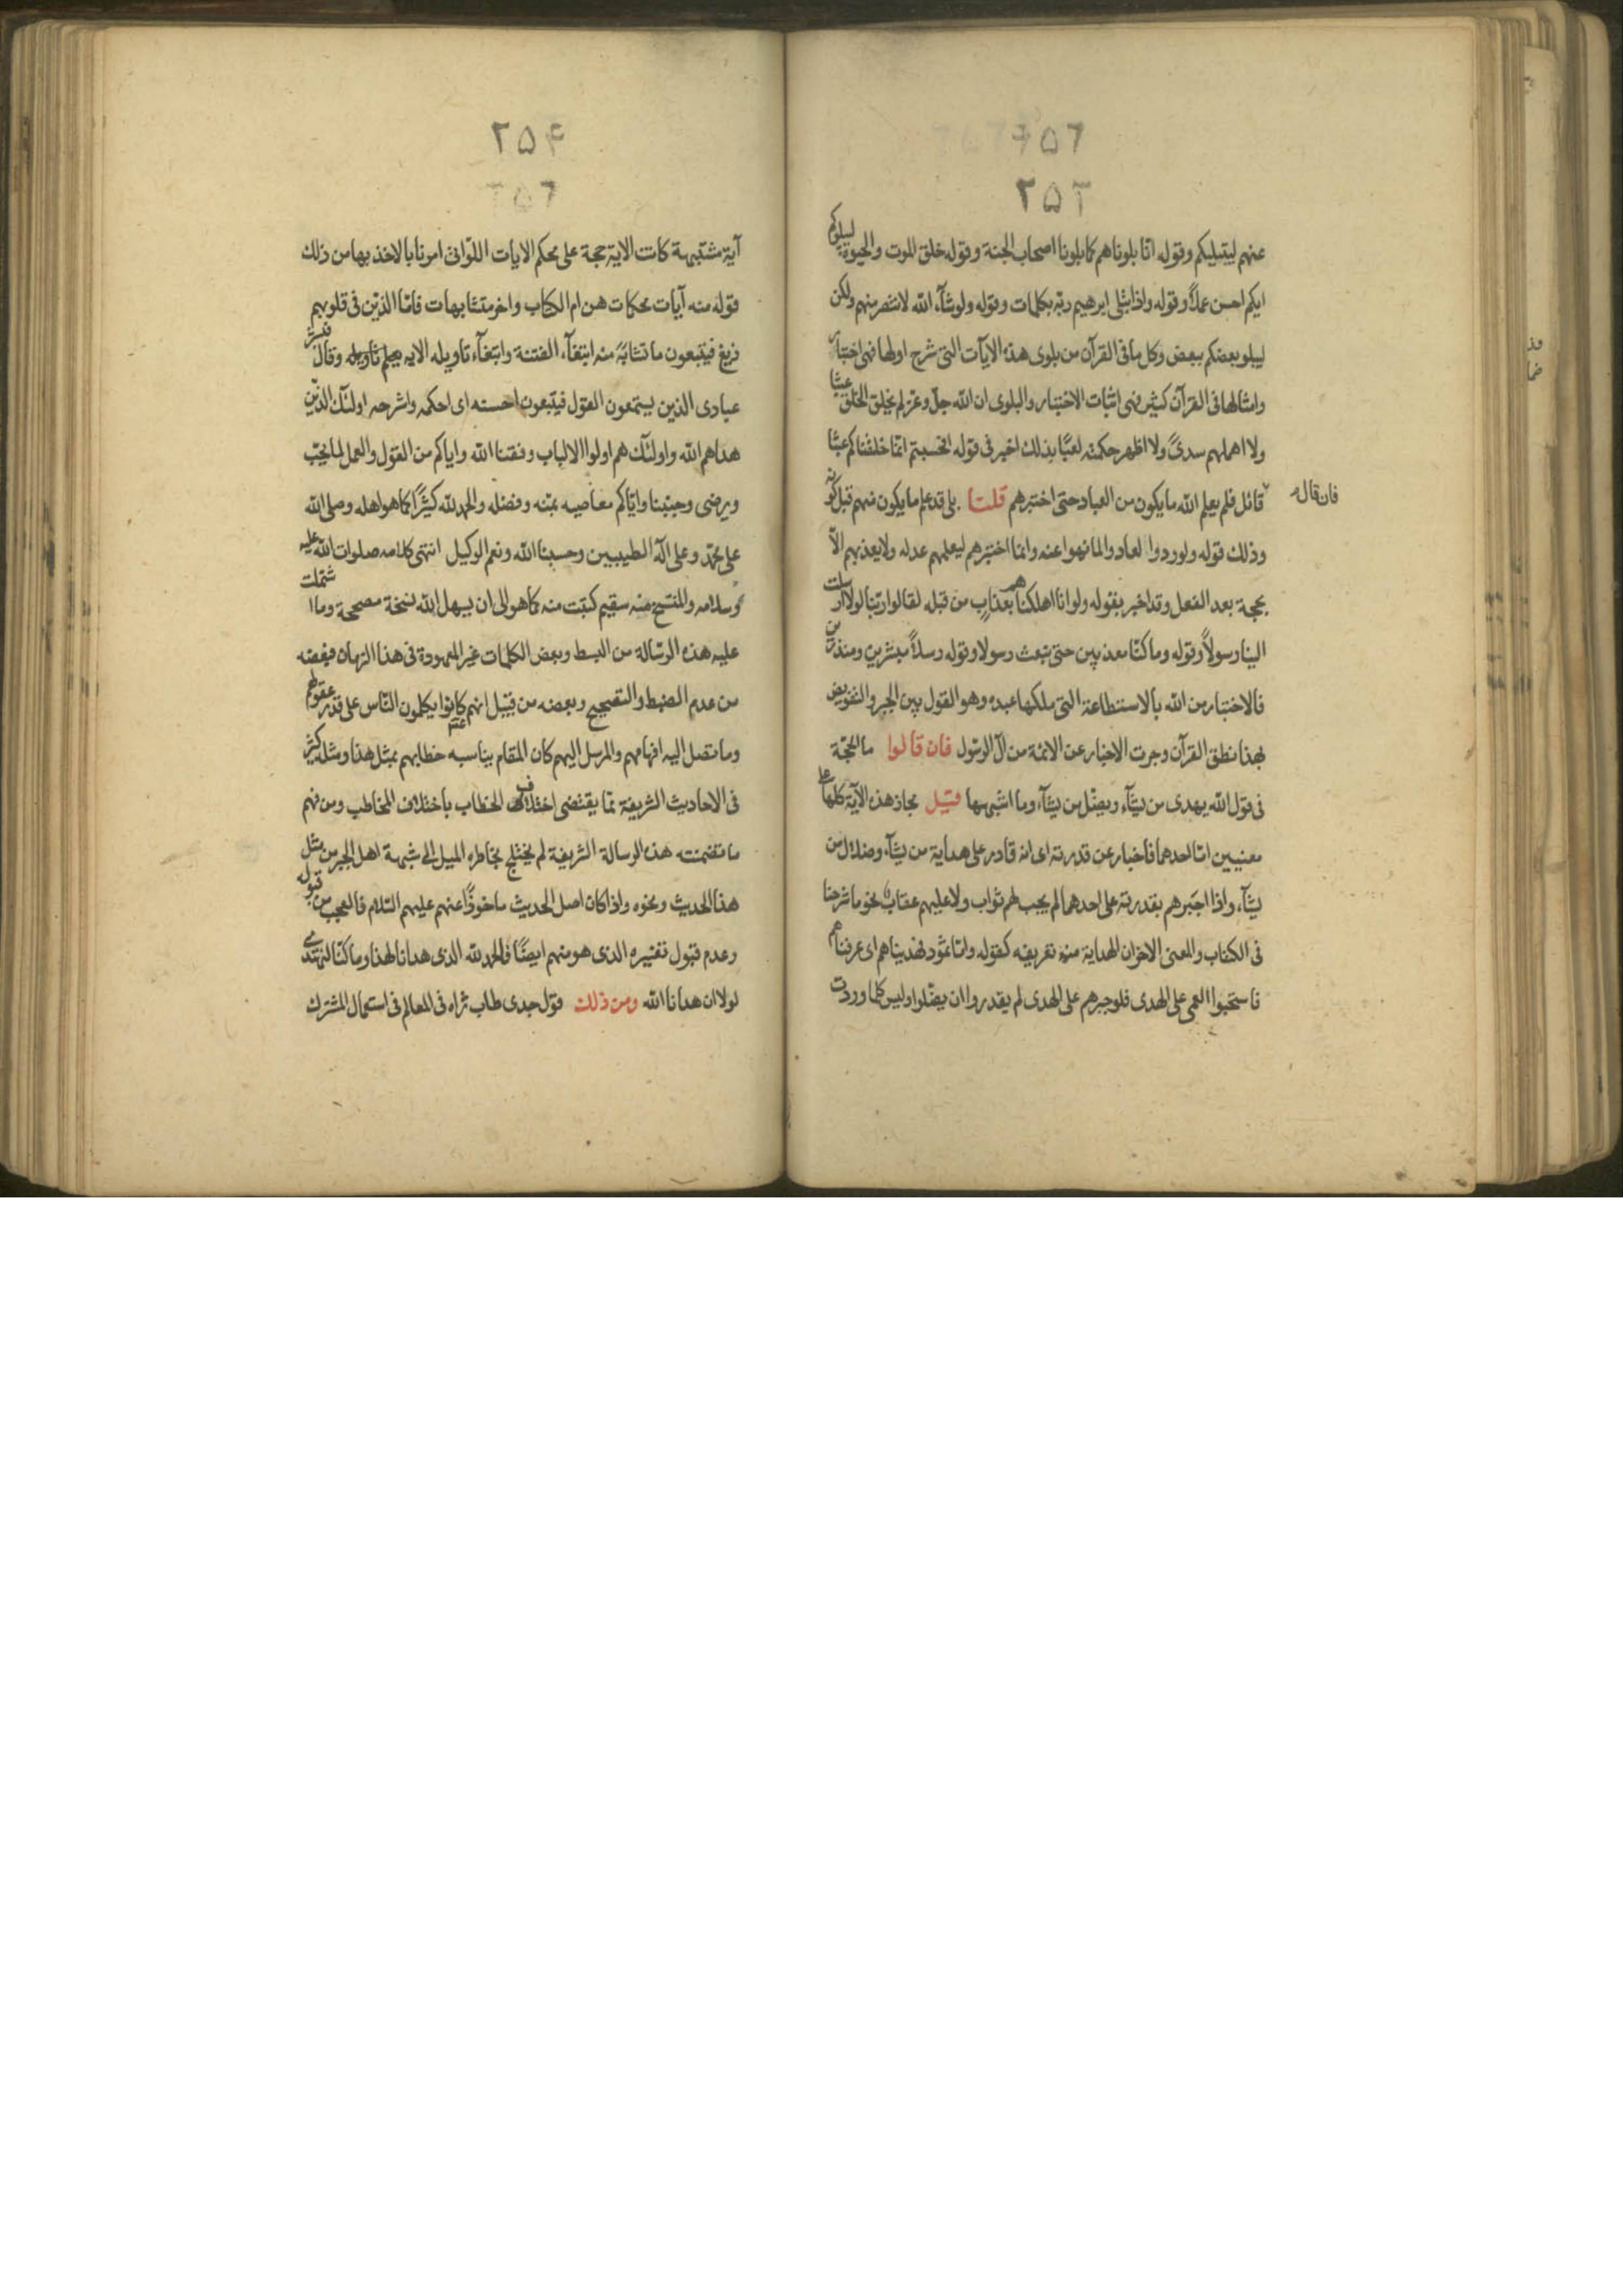 ٢٥٣
عنهم ليبتليكم وقوله انّا بلوناهم كما بلونا اصحاب الجنة وقوله خلق الموت والحيوة ليبلوكم
ايكم احسن عملاً وقوله واذ ابتلى ابرهيم ربّه بكلمات وقوله ولو شآء الله لانتصر منهم ولكن
ليبلو بعضكم ببعض وكل ما فى القرآن من بلوى هذه الآيات التى شرح اولها فهى اختبار
وامثالها فى القرآن كثير فهى اثبات الاختبار والبلوى ان الله جلّ وعزّ لم يخلق الخلق عبثًا
ولا اهملهم سدىً ولا اظهر حكمته لعبًا بذلك اخبر فى قوله افحسبتم انّما خلقناكم عبثًا
فان قال
قائل فلم يعلم الله ما يكون من العباد حتى اختبرهم قلنا بلى قد علم ما يكون منهم قبل كونه
وذلك قوله ولو ردوا لعادوا لما نهوا عنه وانما اختبرهم ليعلمهم عدله ولا يعذبهم الاّ
بحجة بعد الفعل وقد اخبر بقوله ولو انا اهلكناهم بعذاب من قبله لقالوا ربّنا لولا ارسلت
الينا رسولاً وقوله وما كنّا معذبين حتى نبعث رسولا وقوله رسلاً مبشرين ومنذرين
فالاختبار من الله بالاستطاعة التى ملكها عبده وهو القول بين الجبر والتفويض
بهذا نطق القرآن وجرت الاخبار عن الائمة من آل الرسول فان قالوا ما الحجّة
فى قول الله يهدى من يشآء ويضلّ من يشآء وما اشبهها قيل مجاز هذه الآية كلها على
معنيين امّا احدهما فاخبار عن قدرته اى انه قادر على هداية من يشآء وضلال من
يشآء واذا اجبرهم بقدرته على احدهما لم يجب لهم ثواب ولا عليهم عقاب نحو ما شرحنا
فى الكتاب والمعنى الاخر ان الهداية منه تعريفه كقوله وامّا ثمود فهديناهم اى عرفناهم
فاستحبوا العمى على الهدى فلو جبرهم على الهدى لم يقدروا ان يضلّوا وليس كلما وردت
٢٥۴
آية مشتبهة كانت الاية حجة على محكم الايات اللواتى امرنا بالاخذ بها من ذلك
قوله منه آيات محكمات هن ام الكتاب واخر متشابهات فامّا الذين فى قلوبهم
زيغ فيتّبعون ما تشابه منه ابتغآء الفتنة وابتغآء تاويله الايه وقال فبشر
عبادى الذين يستمعون القول فيتبعون احسنه اى احكمه واشرحه اولئك الذين
هداهم الله واولئك هم اولوا الالباب وفقنا الله واياكم من القول والعمل لما يحب
ويرضى وجنبنا وايّاكم معاصيه بمنّه وفضله والحمد لله كثيرًا كما هو اهله وصلى الله
على محمّد وعلى آله الطيبين وحسبنا الله ونعم الوكيل انتهى كلامه صلوات الله عليه
وسلامه والمنتسخ منه سقيم كتبت منه كما هو الى ان يسهل الله نسخة مصححة وما اشتملت
عليه هذه الرسالة من البسط وبعض الكلمات غير المعهودة فى هذا الزمان فبعضه
من عدم الضبط والتصحيح وبعضه من قبيل انهم كانوا يكلمون النّاس على قدر عقولهم
وما تصل اليه افهامهم والمرسل اليهم كان المقام يناسبه خطابهم بمثل هذا ومثله كثير
فى الاحاديث الشريفة مما يقتضى اختلاف الخطاب باختلاف المخاطب ومن فهم
ما تضمنته هذه الرسالة الشريفة لم يختلج بخاطره الميل الى شبهة اهل الجبر من مثل
هذا الحديث ونحوه واذا كان اصل الحديث ماخوذًا عنهم عليهم السّلام فالعجب من قبوله
وعدم قبول تفسيره الذى هو منهم ايضًا فالحمد لله الذى هدانا لهذا وما كنّا لنهتدى
لولا ان هدانا الله ومن ذلك قول جدى طاب ثراه فى المعالم فى استعمال المشترك